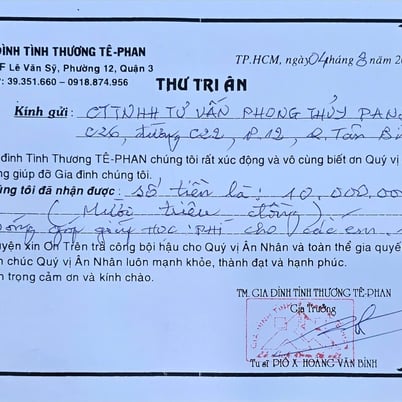 ĐÌNH TÌNH THƯƠNG TÊ-PHAN
F Lê Văn Sỹ, Phường 12, Quận 3
: 39.351.660 – 0918.874.956
TP.HCM, ngày 04 tháng 8 năm 20
THƯ TRI ÂN
Kính gửi : CTTNHH TƯ VẤN PHONG THỦY PAN
C26, đường C22, P.12, Q. Tân Bì
đình Tình Thương TÊ-PHAN chúng tôi rất xúc động và vô cùng biết ơn Quý vị
ng giúp đỡ Gia đình chúng tôi.
úng tôi đã nhận được : số tiền là : 10.000.00
( Mười triệu đồng )
góp giúp HỌC PHÍ cho các em
uyện xin Ơn Trên trả công bội hậu cho Quý vị Ân Nhân và toàn thể gia quyế
n chúc Quý vị Ân Nhân luôn mạnh khỏe, thành đạt và hạnh phúc.
n trọng cảm ơn và kính chào.
TM. GIA ĐÌNH TÌNH THƯƠNG TÊ-PHAN
Gia Trưởng
Tu sĩ PHÓ X. HOÀNG VĂN BÌNH